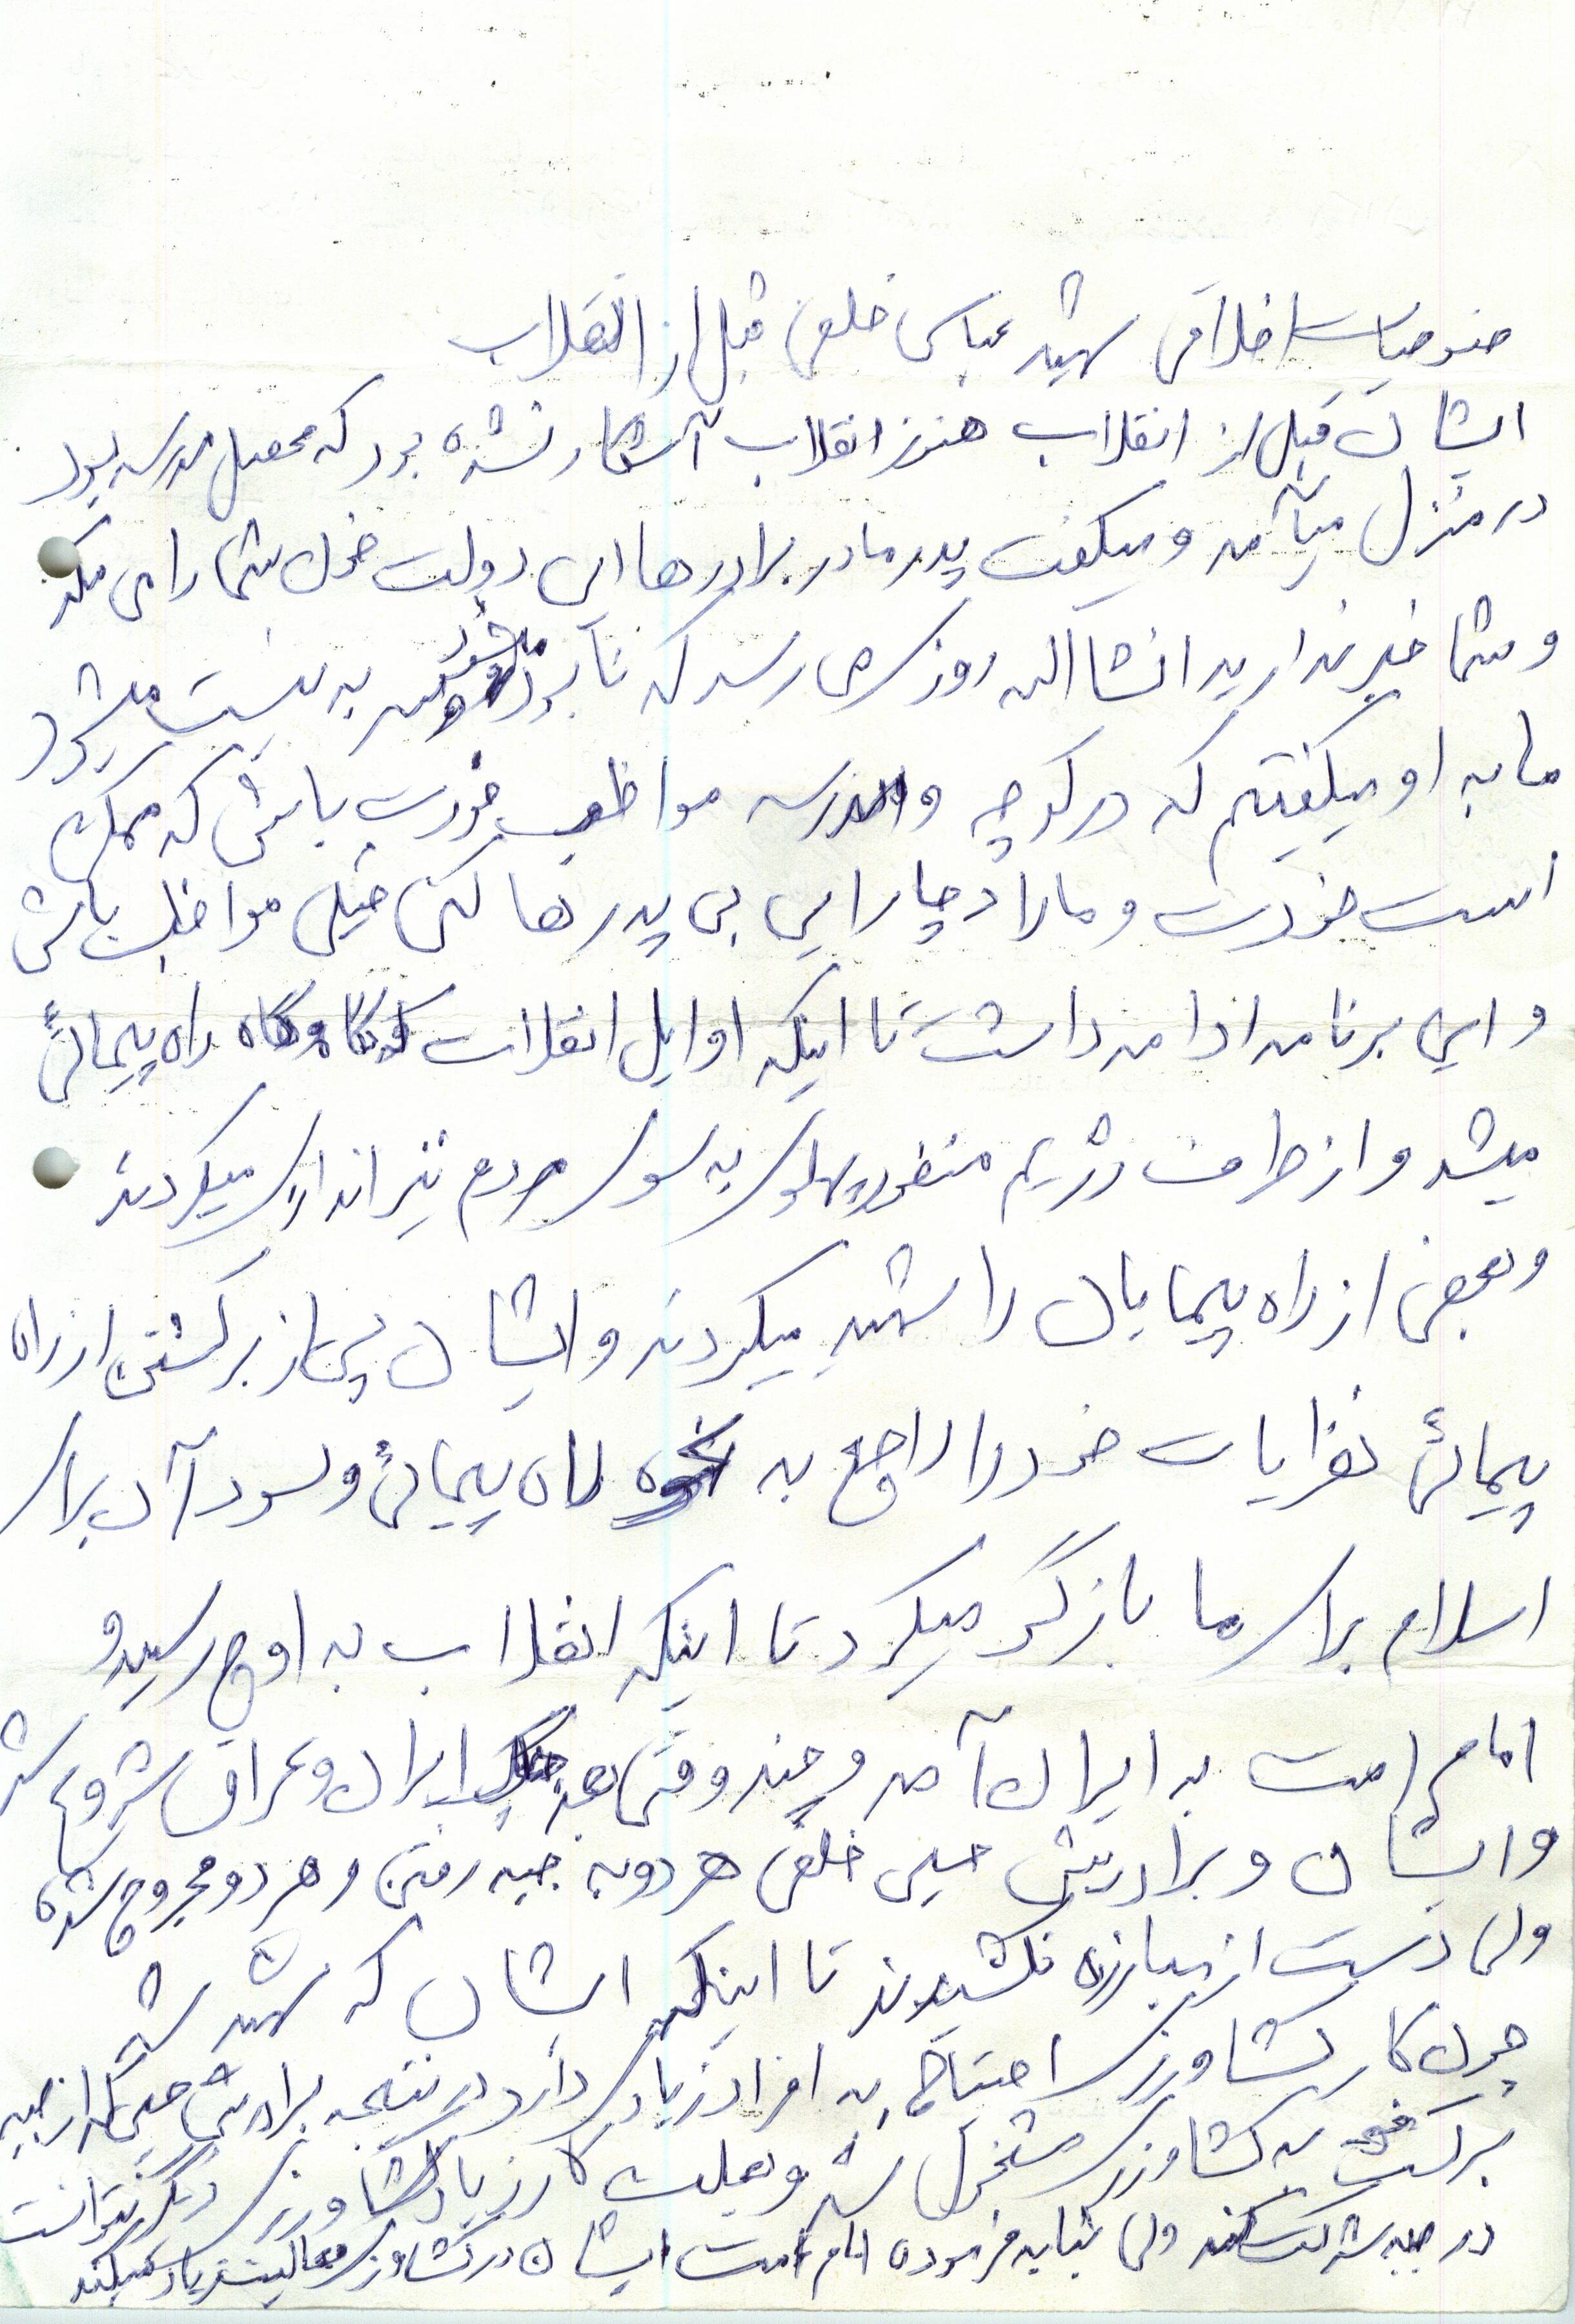 خصوصیات اخلاقی شهید عباس خلفی قبل از انقلاب
ایشان قبل از انقلاب هنوز انقلاب آشکار نشده بود که محصل مدرسه بود
در منزل میآمد و میگفت پدر مادر برادرها این دولت خون شما را می مکد
و شما خبر ندارید انشااله روزی می رسد که نابود میشود به نیست میشود
ما به او میگفتیم که در کوچه و مدرسه مواظب خودت باش که ممکن
است خودت و ما را دچار این بی پدرها کنی خیلی مواظب باش
و این برنامه ادامه داشت تا اینکه اوایل انقلاب گاه و گاه راه پیمائی
میشد و از طرف رژیم منفور پهلوی به سوی مردم تیراندازی میکردند
و بعضی از راه پیمایان را شهید میکردند و ایشان پس از برگشتن از راه
پیمائی نظرایات خود را راجع به نحوه راه پیمائی و سود آن برای
اسلام برای ما بازگو میکرد تا اینکه انقلاب به اوج رسید و
امام امت به ایران آمد و چند وقتی بعد جنگ ایران و عراق شروع شد
و ایشان و برادرش حسین خلفی هر دو به جبهه رفتن و هر دو مجروح شده
ولی دست از مبارزه نکشیدند تا اینکه ایشان که شهید شد
چون کار کشاورزی احتیاج به افراد زیادی دارد در نتیجه برادرش حسین که از جبهه
برگشت به کشاورزی مشغول شد و بعلت کار زیاد کشاورزی دیگر نتوانست
در جبهه شرکت کند ولی بنا به فرموده امام امت ایشان در کشاورزی فعالیت زیاد میکند